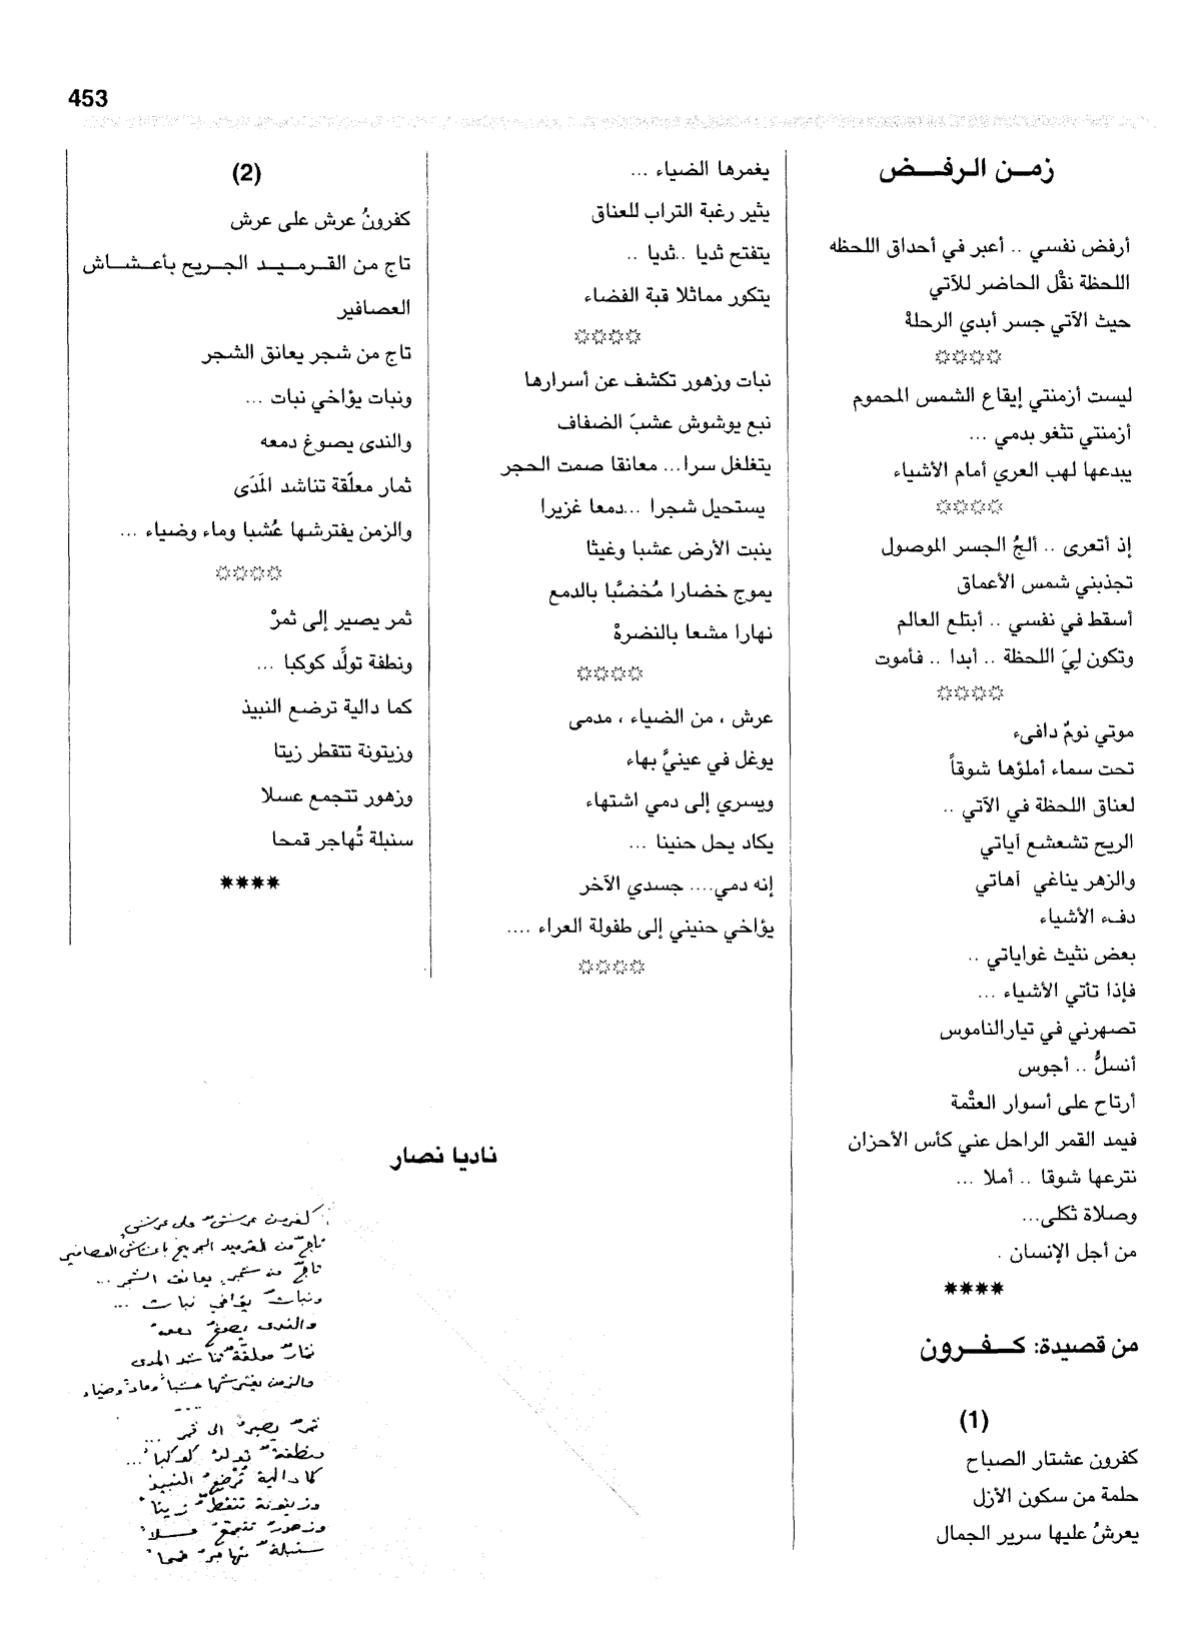 453
زمـــن الـرفـــــض
أرفض نفسي .. أعبر في أحداق اللحظه
اللحظة نقْل الحاضر للآتي
حيث الآتي جسر أبدي الرحلةْ
۞۞۞۞
ليست أزمنتي إيقاع الشمس المحموم
أزمنتي تثغو بدمي ...
يبدعها لهب العري أمام الأشياء
۞۞۞۞
إذ أتعرى .. ألجُ الجسر الموصول
تجذبني شمس الأعماق
أسقط في نفسي .. أبتلع العالم
وتكون لِيَ اللحظة .. أبدا .. فأموت
۞۞۞۞
موتي نومٌ دافىء
تحت سماء أملؤها شوقاً
لعناق اللحظة في الآتي ..
الريح تشعشع آياتي
والزهر يناغي آهاتي
دفء الأشياء
بعض نثيث غواياتي ..
فإذا تأتي الأشياء ...
تصهرني في تيارالناموس
أنسلُّ .. أجوس
أرتاح على أسوار العتْمة
فيمد القمر الراحل عني كأس الأحزان
نترعها شوقا .. أملا ...
وصلاة ثكلى...
من أجل الإنسان .
****
من قصيدة: كـــفـــرون
(1)
كفرون عشتار الصباح
حلمة من سكون الأزل
يعرشُ عليها سرير الجمال
يغمرها الضياء ...
يثير رغبة التراب للعناق
يتفتح ثديا ..ثديا ..
يتكور مماثلا قبة الفضاء
۞۞۞۞
نبات وزهور تكشف عن أسرارها
نبع يوشوش عشبَ الضفاف
يتغلغل سرا... معانقا صمت الحجر
يستحيل شجرا ...دمعا غزيرا
ينبت الأرض عشبا وغيثا
يموج خضارا مُخضَّبا بالدمع
نهارا مشعا بالنضرهْ
۞۞۞۞
عرش ، من الضياء ، مدمى
يوغل في عينيَّ بهاء
ويسري إلى دمي اشتهاء
يكاد يحل حنينا ...
إنه دمي.... جسدي الآخر
يؤاخي حنيني إلى طفولة العراء ....
۞۞۞۞
(2)
كفرونُ عرش على عرش
تاج من القـرمـيـد الجـريح بـأعـشـاش
العصافير
تاج من شجر يعانق الشجر
ونبات يؤاخي نبات ...
والندى يصوغ دمعه
ثمار معلَّقة تناشد المَدَى
والزمن يفترشها عُشبا وماء وضياء ...
۞۞۞۞
ثمر يصير إلى ثمرْ
ونطفة تولِّد كوكبا ...
كما دالية ترضع النبيذ
وزيتونة تتقطر زيتا
وزهور تتجمع عسلا
سنبلة تُهاجر قمحا
****
ناديا نصار
كفرون عرشٌ على عرش
تاجٌ من القرميد الجريح بأعشاش العصافير
تاجٌ من شجر يعانق الشجر ...
ونباتٌ يؤاخي نبات ...
والندى يصوغُ دمعه
ثمارٌ معلقةٌ تناشد المدى
والزمن يفترشها عشباً وماءً وضياء
...
ثمرٌ يصيرُ الى ثمر ...
ونطفةٌ تولدُ كوكباً ...
كما دالية تُرْضعُ النبيذ
وزيتونة تتقطرُ زيتاً
وزهورٌ تتجمعُ عسلاً
سنبلةٌ تهاجرُ قمحاً